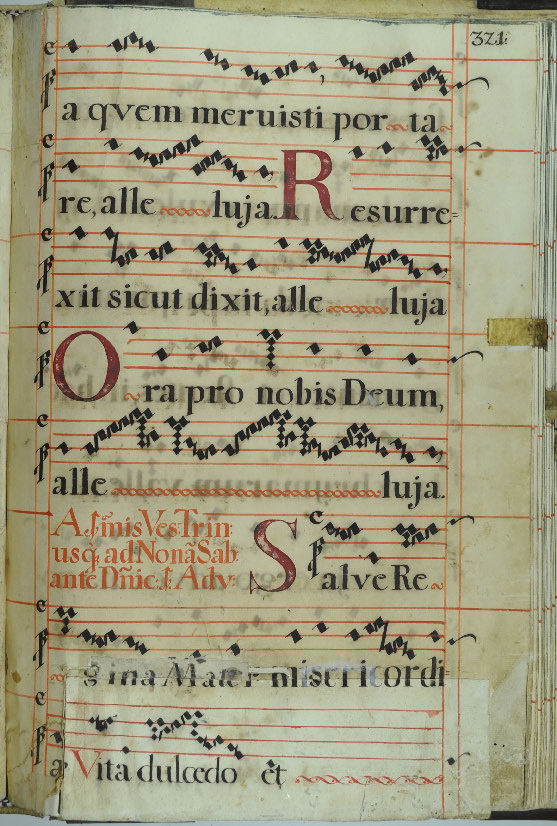 321.
a qvem meruisti por ta
re, alle luja. Resurre=
xit sicut dixit, alle luja
Ora pro nobis Deum,
alle luja.
A fmis Ves Trin:
usq₃ ad Nonã Sab:
ante Dñic. f. Adv:
Salve Re
gina Mater misericordi=
æ Vita dulcedo et